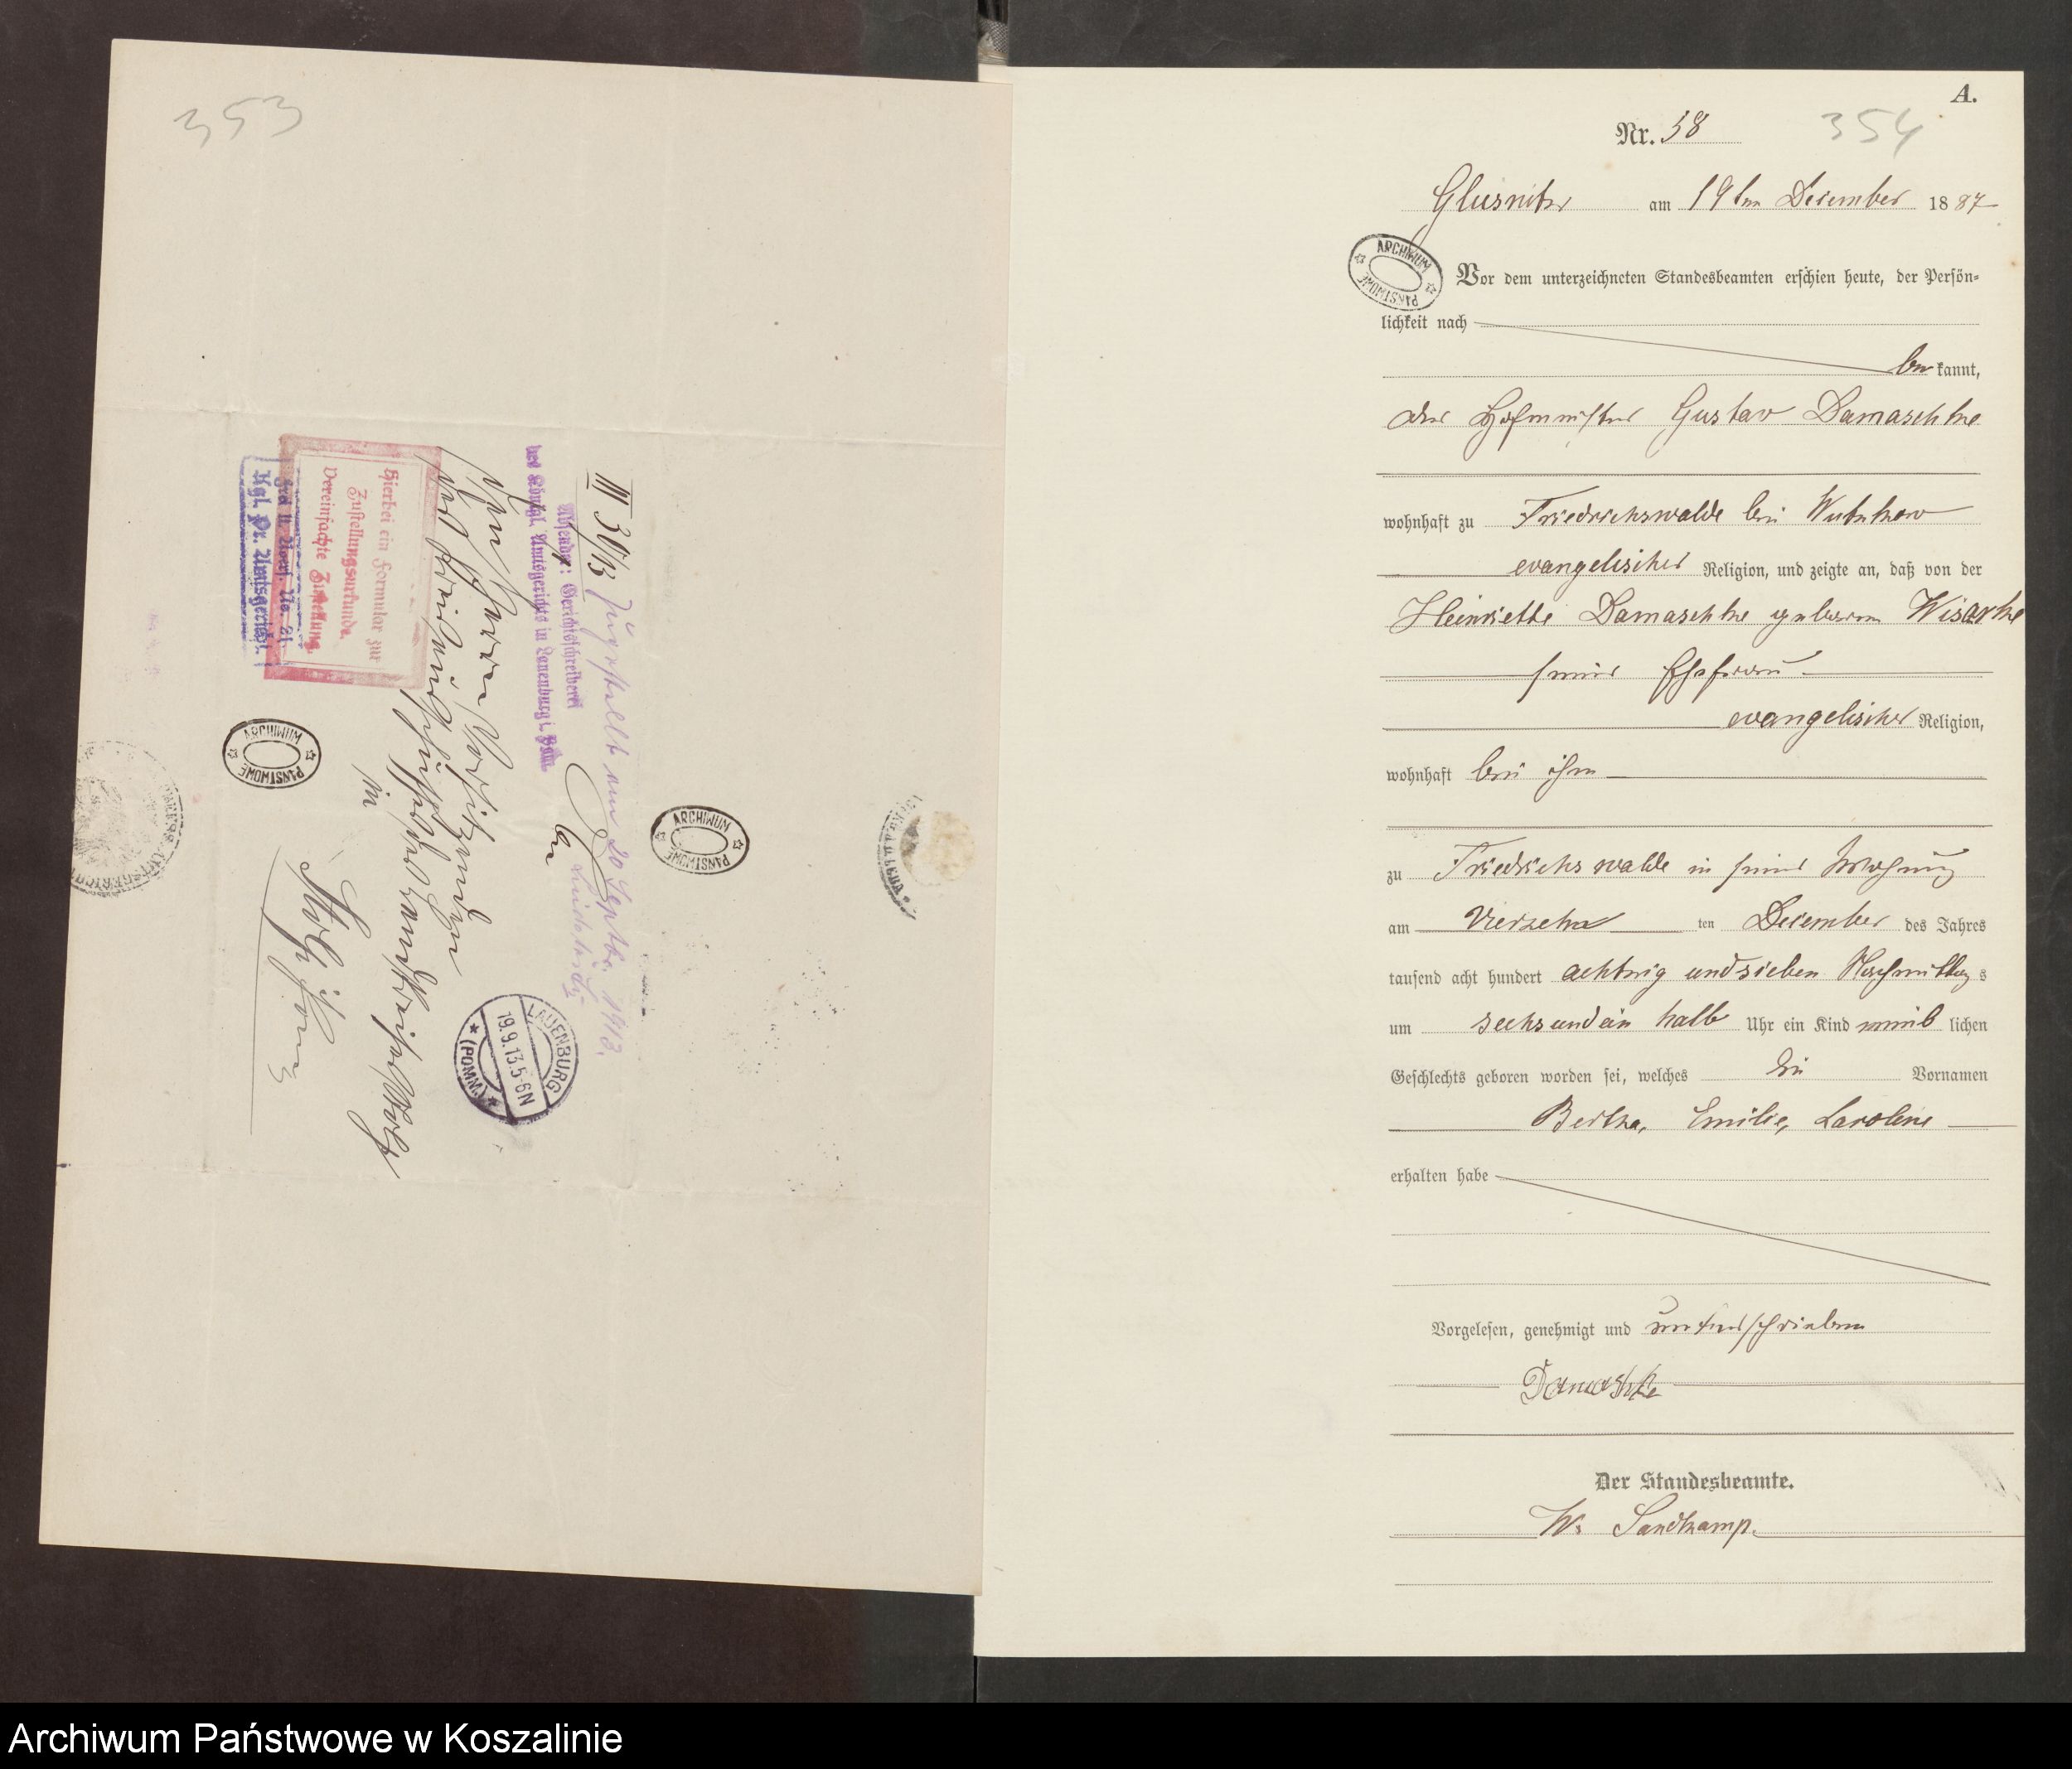 353
III 30/13
Zugestellt am 20 Septbr. 1913.
Absender: Gerichtsschreiberei
des Königl. Amtsgerichts in Lauenburg i. Pom.
An
den Herrn Vorsitzenden
des Kreisausschusses
in
Stolp i/Pom
Hierbei ein Formular zur
Zustellungsurkunde.
Vereinfachte Zustellung.
Frei lt. Avers. No. 21
Kgl. Pr. Amtsgericht.
LAUENBURG
19.9.13.5-6N
* (POMM.) *
ARCHIWUM PAŃSTWOWE
ARCHIWUM PAŃSTWOWE
A.
Nr. 58
354
Glusnitz am 19ten December 1887
ARCHIWUM PAŃSTWOWE
Vor dem unterzeichneten Standesbeamten erschien heute, der Persön-
lichkeit nach
be kannt,
der Hofmeister Gustav Damaschke
wohnhaft zu Friedrichswalde bei Wutzkow
evangelischer Religion, und zeigte an, daß von der
Henriette Damaschke geborene
seiner Ehefrau
evangelischer Religion,
wohnhaft bei ihm
zu Friedrichswalde in seiner Wohnung
am vierzehn ten December des Jahres
tausend acht hundert achtzig und sieben Nachmittag s
um sechs und ein halb Uhr ein Kind weib lichen
Geschlechts geboren worden sei, welches die Vornamen
Bertha, Emilie, Karoline
erhalten habe
Vorgelesen, genehmigt und unterschrieben
Damaschke
Der Standesbeamte.
W. Sandkamp.
Archiwum Państwowe w Koszalinie